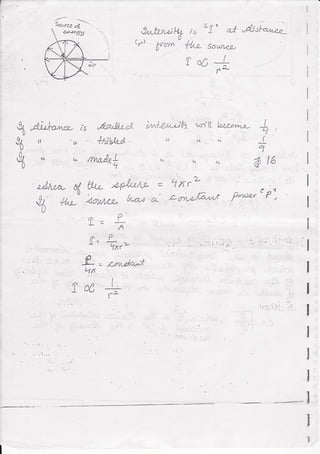 Source of
energy
2r
Intensity is "I" at distance
"r" from the source
I ∝ 1/r²
If distance is doubled intensity will become 1/4
If " " tribled " " " 1/9
If " " made 1/4 " " 16
Area of the sphere = 4πr²
If the source has a constant power "P",
I = P/A
I = P/4πr²
P/4π = constant
I ∝ 1/r²